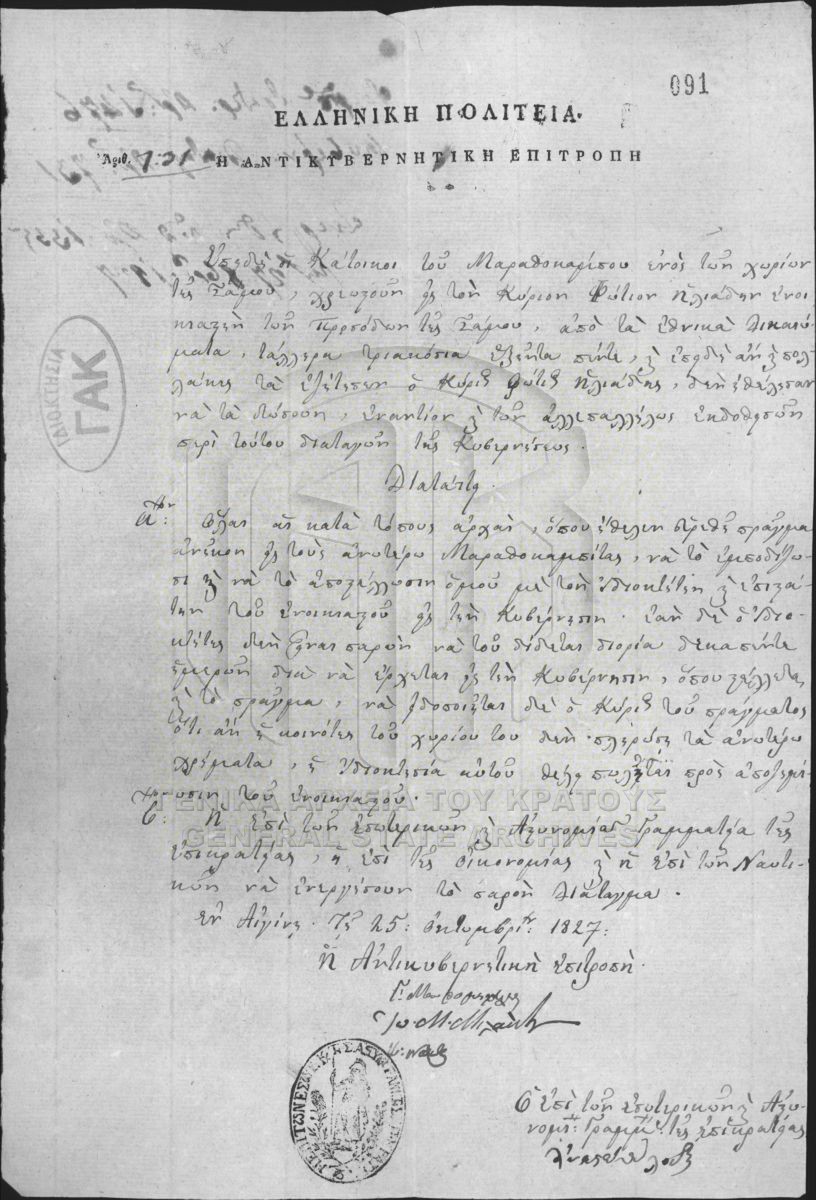 091
ΕΛΛΗΝΙΚΗ ΠΟΛΙΤΕΙΑ.
Ἀριθ. 731 Η ΑΝΤΙΚΥΒΕΡΝΗΤΙΚΗ ΕΠΙΤΡΟΠΗ
Ἐπειδὴ οἱ Κάτοικοι τοῦ Μαραθοκάμπου ἑνὸς τῶν χωρίων
τῆς Σάμου, χρεωστοῦν εἰς τὸν Κύριον Φώτιον Ἠλιάδην ἐνοι-
κιαστὴν τῶν Προσόδων τῆς Σάμου, ἀπὸ τὰ ἐθνικὰ δικαιώ-
ματα, τάλλερα τριακόσια ἑξῆντα πέντε, καὶ ἐπειδὴ ἂν καὶ πολ-
λάκις τὰ ἐζήτησεν ὁ Κύριος Φώτιος Ἠλιάδης, δὲν ἠθέλησαν
νὰ τὰ δώσουν, ἐναντίον καὶ τῶν ἀλλεπαλλήλως ἐκδοθεισῶν
περὶ τούτου διαταγῶν τῆς Κυβερνήσεως.
Διατάττει.
Αον: Ὅλαι αἱ κατὰ τόπους ἀρχαὶ, ὅπου ἤθελεν εὑρεθῆ πρᾶγμα
ἀνῆκον εἰς τοὺς ἀνωτέρω Μαραθοκαμπίτας, νὰ τὸ ἐμποδίζω-
σι καὶ νὰ τὸ ἀποστέλλωσιν ὁμοῦ μὲ τὸν ἰδιοκτήτην καὶ ἐπιστά-
την τοῦ ἐνοικιαστοῦ εἰς τὴν Κυβέρνησιν. ἐὰν δὲ ὁ ἰδιο-
κτήτης δὲν ἦναι παρὼν νὰ τοῦ δίδεται διορία δεκαπέντε
ἡμερῶν διὰ νὰ ἔρχεται εἰς τὴν Κυβέρνησιν, ὅπου στέλλεται
καὶ τὸ πρᾶγμα, νὰ εἰδοποιῆται δὲ ὁ Κύριος τοῦ πράγματος
ὅτι ἂν ἡ κοινότης τοῦ χωρίου του δὲν πληρώσῃ τὰ ἀνωτέρω
χρήματα, ἡ ἰδιοκτησία αὐτοῦ θέλει πωληθῆ πρὸς ἀποζημί-
ωσιν τοῦ ἐνοικιαστοῦ.
Βον: Ἡ Ἐπὶ τῶν Ἐσωτερικῶν καὶ Ἀστυνομίας Γραμματεία τῆς
Ἐπικρατείας, ἡ ἐπὶ τῆς Οἰκονομίας καὶ ἡ ἐπὶ τῶν Ναυτι-
κῶν νὰ ἐνεργήσουν τὸ παρὸν Διάταγμα.
Ἐν Αἰγίνῃ. Τῇ 25: Ὀκτωμβρίου: 1827:
Ἡ Ἀντικυβερνητικὴ Ἐπιτροπή.
Ὁ Ἐπὶ τῶν Ἐσωτερικῶν καὶ Ἀστυ-
νομίας: Γραμμτεὺς τῆς Ἐπικρατείας
ΙΔΙΟΚΤΗΣΙΑ
ΓΑΚ
ΓΕΝΙΚΑ ΑΡΧΕΙΑ ΤΟΥ ΚΡΑΤΟΥΣ
GENERAL STATE ARCHIVES